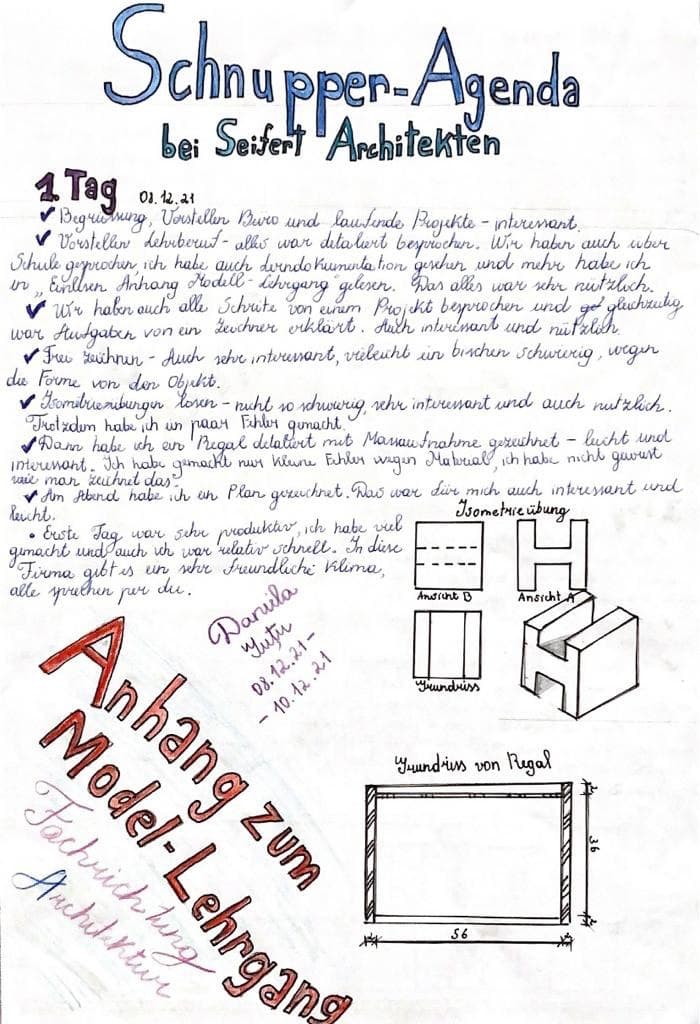 Schnupper-Agenda
bei Seifert Architekten
1. Tag 08.12.21
✔ Begrüssung, Vorstellen Büro und laufende Projekte - interessant.
✔ Vorstellen Lehrberuf - alles war detaliert besprochen. Wir haben auch über
Schule gesprochen, ich habe auch Lerndokumentation gesehen und mehr habe ich
in „Einlisen Anhang Modell-Lehrgang" gelesen. Das alles war sehr nützlich.
✔ Wir haben auch alle Schrite von einem Projekt besprochen und gleichzeitig
war Aufgaben von ein Zeichner erklärt. Auch interessant und nützlich.
✔ Frei zeichnen - Auch sehr interessant, vieleicht ein bischen schwierig, wegen
die Forme von den Objekt.
✔ Isometrieübungen lösen - nicht so schwierig, sehr interessant und auch nützlich.
Trotzdem habe ich ein paar Fehler gemacht.
✔ Dann habe ich ein Regal detaliert mit Massaufnahme gezeichnet - leicht und
interessant. Ich habe gemacht nur kleine Fehler wegen Material, ich habe nicht gewust
wie man zeichnet das.
✔ Am Abend habe ich ein Plan gezeichnet. Das war für mich auch interessant und
leicht.
• Erste Tag war sehr produktiv, ich habe viel
gemacht und auch ich war relativ schnell. In diese
Firma gibt es ein sehr freundliche Klima,
alle sprechen per du.
Isometrieübung
Ansicht B
Ansicht A
Grundriss
Daniila
08.12.21 -
- 10.12.21
Anhang zum
Model-Lehrgang
Fachrichtung
Architektur
Grundriss von Regal
2
36
2
2
56
2